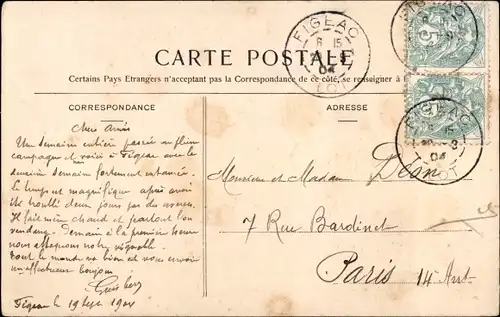 CARTE POSTALE
Certains Pays Etrangers n'acceptant pas la Correspondance de ce côté, se renseigner à
CORRESPONDANCE
Une semaine entière passée en pleine
campagne et voici à Figeac avec le
temps est magnifique après avoir
deux jours par des averses
Il fait même chaud et partout l'on
vendange. Demain à la première heure
nous attaquons notre vignoble.
Tout le monde va bien et vous envoie
un affectueux bonjour
Figeac le 19 Sept 1904
ADRESSE
Monsieur et Madame
7 Rue Bardinet
Paris 14 Arrt.
FIGEAC
15
04
LOT
FIGEAC
FIGEAC
15
04
LOT
5
5